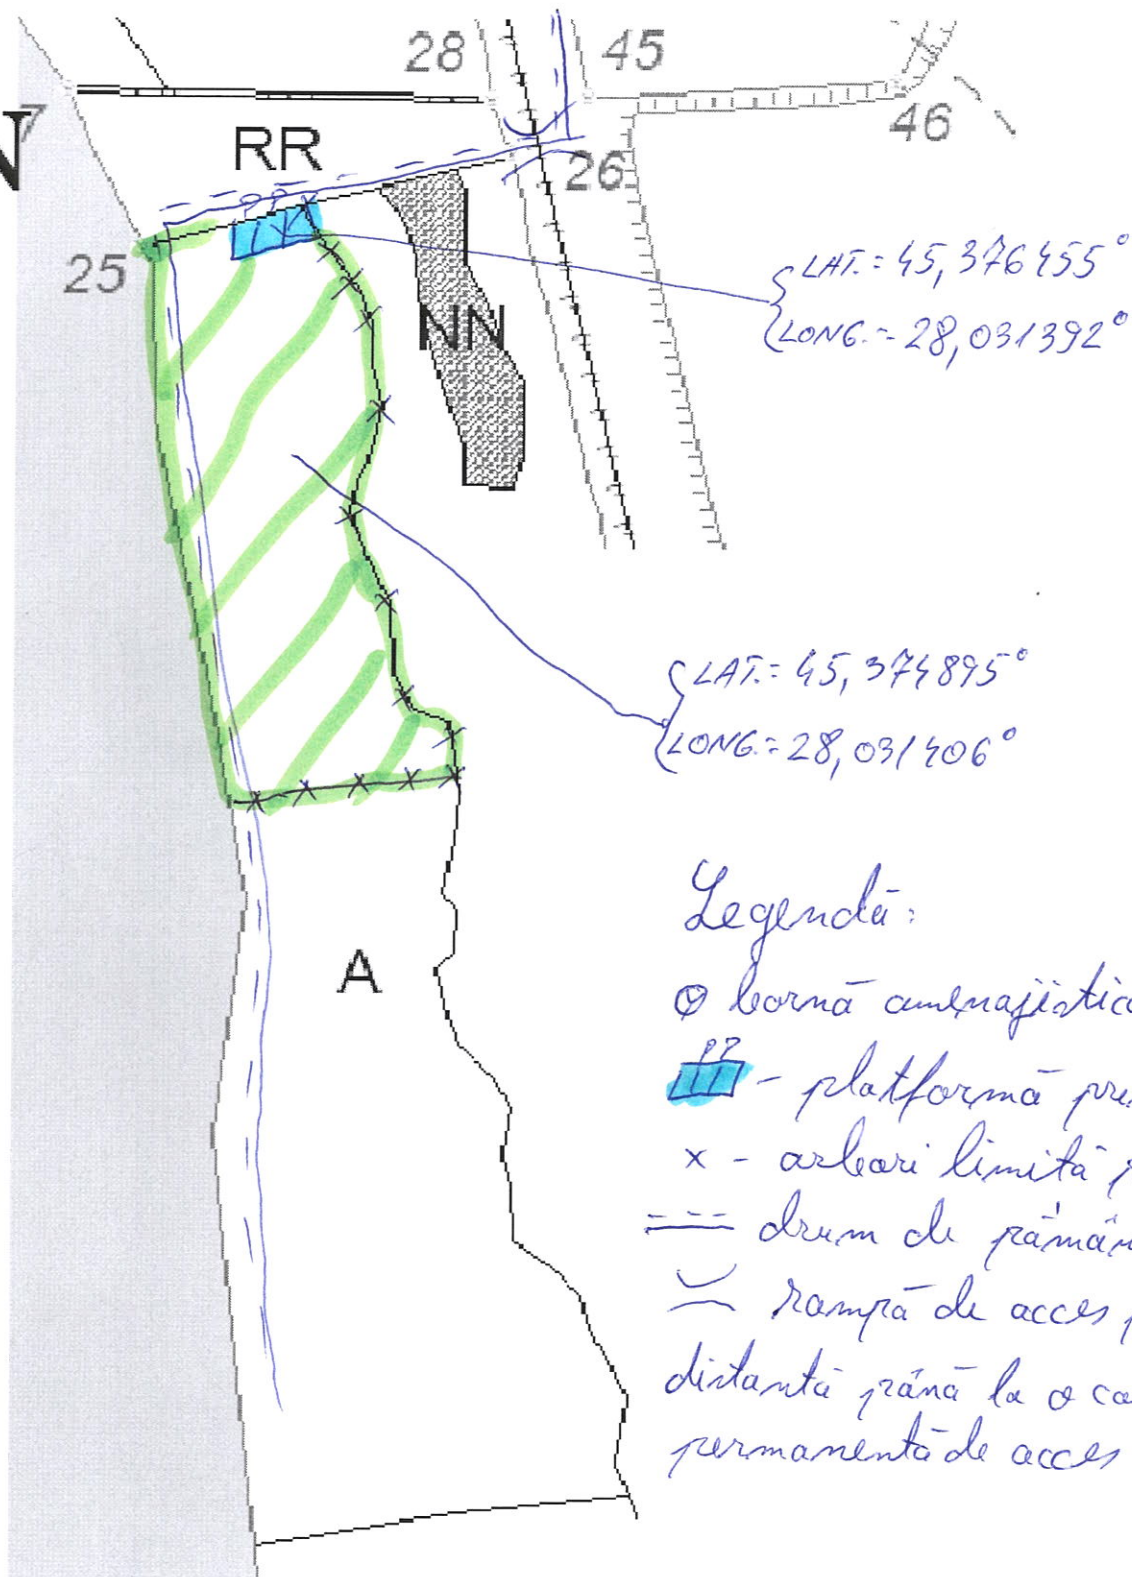 28
45
46
7
N
RR
26
PP
25
NN
LAT.: 45,376455°
LONG.- 28,031392°
LAT.: 45,374895°
LONG.: 28,031406°
A
Legendă:
bornă amenajistic
PP
- platformă
x - arbori limită
drum de pămân
rampă de acces p
distantă până la o ca
permanentă de acces